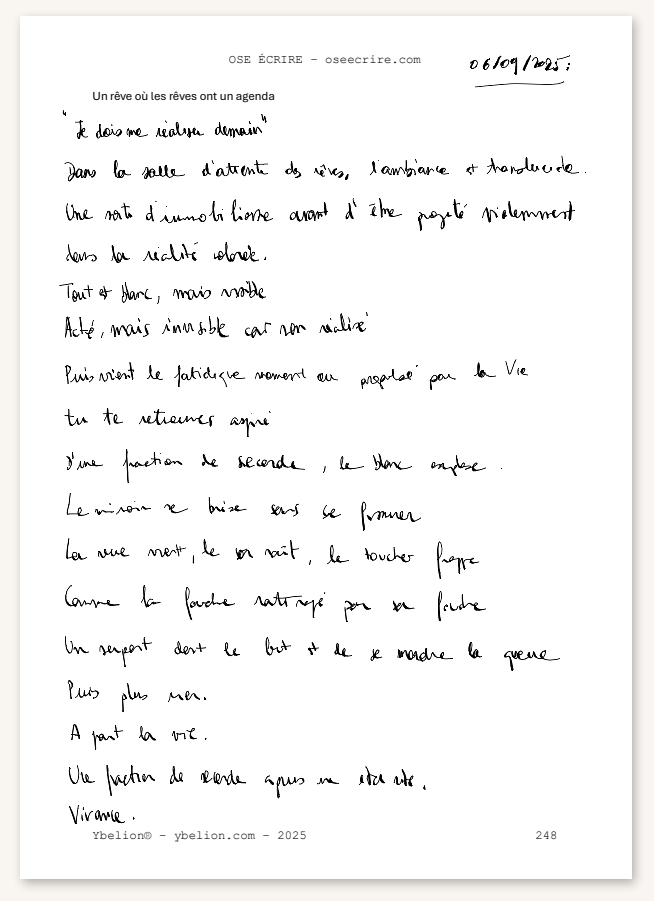 OSE ÉCRIRE – oseecrire.com
06/09/2025 :
Un rêve où les rêves ont un agenda
"Je dois me réaliser demain"
Dans la salle d'attente des rêves, l'ambiance est translucide.
Une sorte d'immobilisme avant d'être projeté violemment
dans la réalité colorée.
Tout est blanc, mais visible
Acté, mais invisible car non réalisé
Puis vient le fatidique moment où propulsé par la Vie
tu te retrouves aspiré
D'une fraction de seconde, le blanc explose.
Le miroir se brise sans se former
La vue naît, le son naît, le toucher frappe
Comme la foudre rattrapé par sa foudre
Un serpent dont le but est de se mordre la queue
Puis plus rien.
A part la vie.
Une fraction de seconde après une éternité.
Vivante.
Ybelion® – ybelion.com – 2025
248